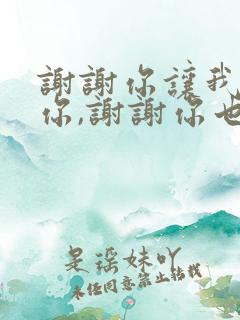 謝謝你讓我
你,謝謝你也
是瑶妹吖
未经同意禁止转载